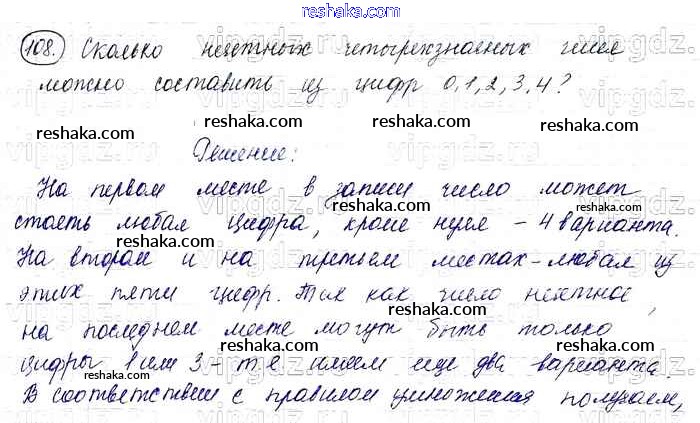 reshaka.com
108. Сколько нечетных четырехзначных чисел
можно составить из цифр 0,1,2,3,4?
reshaka.com reshaka.com reshaka.com
Решение:
На первом месте в записи число может
reshaka.com
стоять любая цифра, кроме нуля - 4 варианта.
reshaka.com
На втором и на третьем местах - любая из
этих пяти цифр. Так как число нечетное,
reshaka.com
на последнем месте могут быть только
цифры 1 или 3 - т.е имеем еще два варианта.
reshaka.com reshaka.com
В соответствии с правилом умножения получаем,
reshaka.com